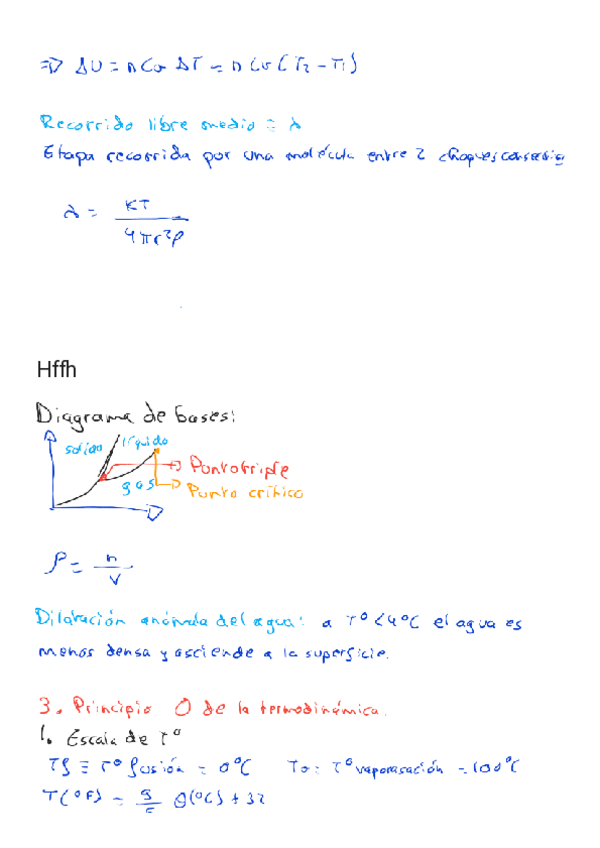 => ΔU = n Cv ΔT = n Cv (T2 - T1)
Recorrido libre medio = λ
Etapa recorrida por una molécula entre 2 choques
λ = KT / 4πr²P
Hffh
Diagrama de bases:
solido líquido
gas
Punto triple
Punto crítico
ρ = n / V
Dilatación anómala del agua: a Tº < 4ºC el agua es
menos densa y asciende a la superficie.
3. Principio 0 de la termodinámica.
1. Escala de Tº
Tf ≡ Tº fusión = 0ºC To: Tº vaporasación = 100ºC
T(ºF) = 9/5 θ(ºC) + 32